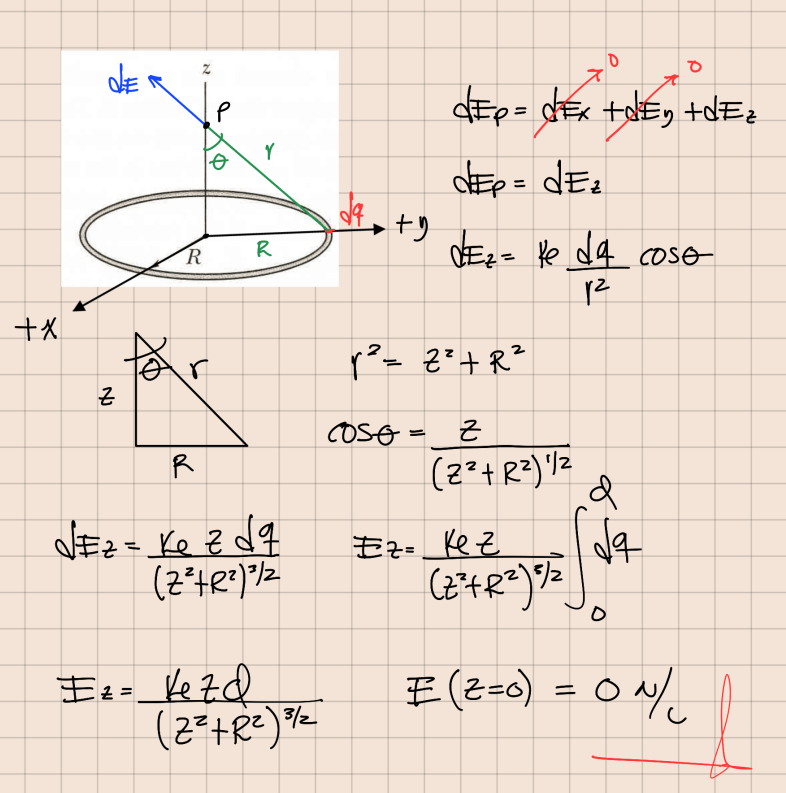 dE
z
P
θ
r
dq
+y
R
R
+x
dEp = dEx + dEy + dEz
0
0
dEp = dEz
dEz = ke dq/r² cosθ
θ
r
z
R
r² = z² + R²
cosθ = z/(z² + R²)^1/2
dEz = ke z dq/(z²+R²)^3/2
Ez = ke z/(z²+R²)^3/2 ∫₀^Q dq
Ez = ke z Q/(z²+R²)^3/2
E(z=0) = 0 N/C